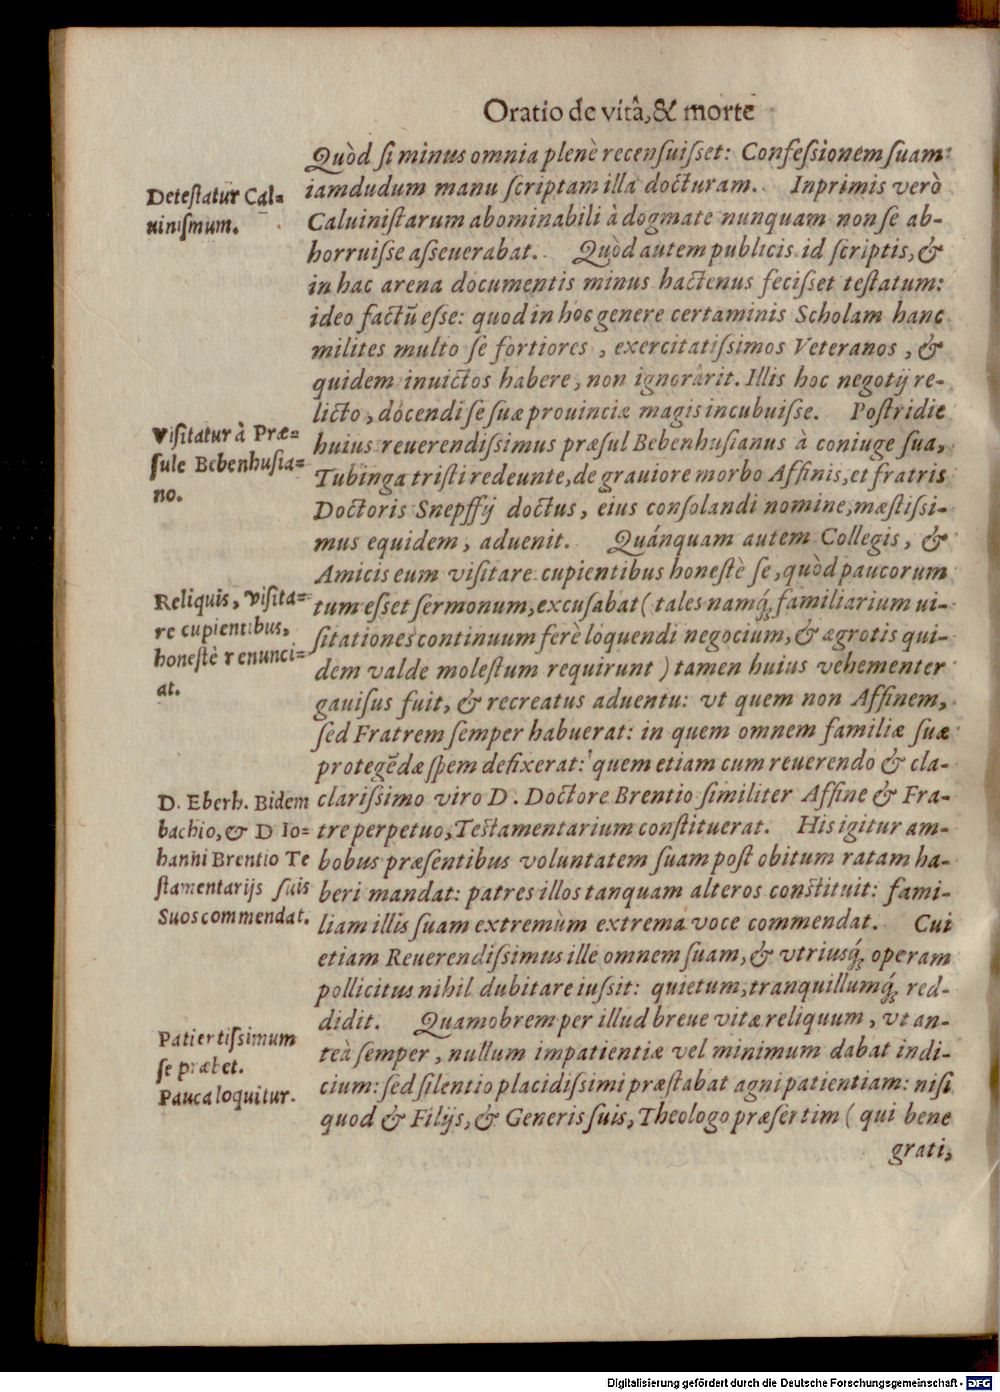 Oratio de vitâ, & morte
Quòd ſi minus omnia plenè recenſuiſset: Confeſsionem ſuam
iamdudum manu ſcriptam illa docturam. Inprimis verò
Caluiniſtarum abominabili à dogmate nunquam non ſe ab-
horruiſse aſseuerabat. Quòd autem publicis id ſcriptis, &
in hac arena documentis minus hactenus feciſset teſtatum:
ideo factũ eſse: quod in hoc genere certaminis Scholam hanc
milites multo ſe fortiores, exercitatiſsimos Veteranos, &
quidem inuictos habere, non ignorârit. Illis hoc negotij re-
licto, docendi ſe ſuæ prouinciæ magis incubuiſse. Poſtridie
huius reuerendiſsimus præſul Bebenhuſianus à coniuge ſua,
Tubinga triſti redeunte, de grauiore morbo Affinis, et fratris
Doctoris Snepffij doctus, eius conſolandi nomine, mæſtiſsi-
mus equidem, aduenit. Quánquam autem Collegis, &
Amicis eum viſitare cupientibus honeſtè ſe, quòd paucorum
tum eſset ſermonum, excuſabat (tales namq́; familiarium ui-
ſitationes continuum ferè loquendi negocium, & ægrotis qui-
dem valde moleſtum requirunt) tamen huius vehementer
gauiſus fuit, & recreatus aduentu: vt quem non Affinem,
ſed Fratrem ſemper habuerat: in quem omnem familiæ ſuæ
protegẽdæ ſpem defixerat: quem etiam cum reuerendo & cla-
clariſsimo viro D. Doctore Brentio ſimiliter Affine & Fra-
tre perpetuo, Teſtamentarium conſtituerat. His igitur am-
bobus præſentibus voluntatem ſuam poſt obitum ratam ha-
beri mandat: patres illos tanquam alteros conſtituit: fami-
liam illis ſuam extremùm extrema voce commendat. Cui
etiam Reuerendiſsimus ille omnem ſuam, & vtriusq́; operam
pollicitus nihil dubitare iuſsit: quietum, tranquillumq́; red-
didit. Quamobrem per illud breue vitæ reliquum, vt an-
teà ſemper, nullum impatientiæ vel minimum dabat indi-
cium: ſed ſilentio placidiſsimi præſtabat agni patientiam: niſi
quod & Filijs, & Generis ſuis, Theologo præſertim ( qui bene
grati,
Deteſtatur Cal=
uiniſmum.
Viſitatur à Præ=
ſule Bebenhuſia=
no.
Reliquis, viſita=
re cupientibus,
honeſtè renunci=
at.
D. Eberh. Bidem
bachio, & D Io=
hanni Brentio Te
ſtamentarijs ſuis
Suos commendat.
Patientiſsimum
ſe præbet.
Pauca loquitur.
Digitalisierung gefördert durch die Deutsche Forschungsgemeinschaft - DFG